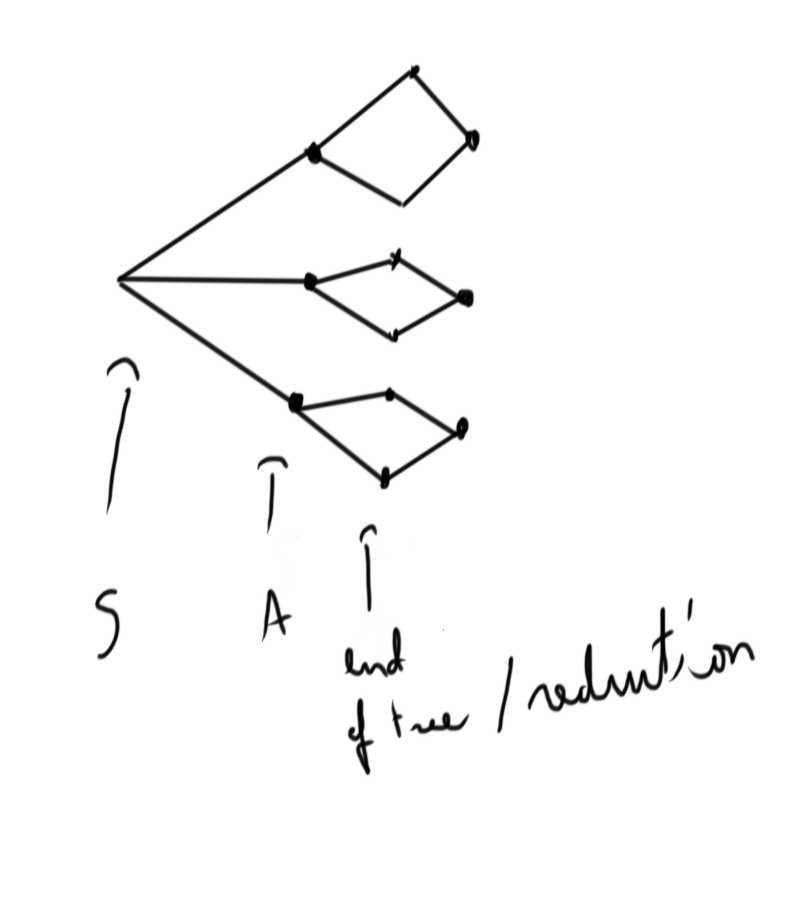 S
A
end
of tree / reduction